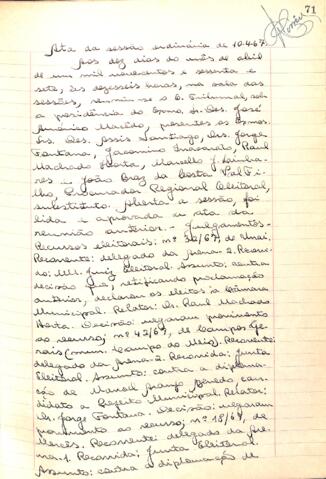 71
Ata da sessão ordinária de 10-4-67.
Aos dez dias do mês de abril
de um mil novecentos e sessenta e
sete, às dezesseis horas, na sala das
sessões, reuniu-se o E. Tribunal, sob
a presidência do Exmo. Sr. Des. José
Américo Macêdo, presentes os Exmos.
Srs. Des. Assis Santiago, Drs. Jorge
Fontana, Jacomino Inacarato, Raul
Machado Horta, Marcello J. Linha-
res e João Braz da Costa Val Fi-
lho Procurador Regional Eleitoral,
substituto. Aberta a sessão, foi
lida e aprovada a ata da
reunião anterior. - Julgamentos -
Recursos eleitorais: nº 30/67, de Unaí.
Recorrente: delegado da Arena-2. Recorri-
do: MM. Juiz Eleitoral. Assunto: contra
decisão que, retificando proclamação
anterior, declarou os eleitos à Câmara
Municipal. Relator: Dr. Raul Machado
Horta. Decisão: negaram provimento
ao recurso; nº 42/67, de Campos Ge-
rais (mun. Campo do Meio). Recorrente:
delegado da Arena-2. Recorrida: Junta
Eleitoral. Assunto: contra a diploma-
ção de Manoel Azevedo can-
didato a Prefeito Municipal. Relator:
Dr. Jorge Fontana. Decisão: negaram
provimento ao recurso; nº 18/67, de
Mercês. Recorrente: delegado da Are-
na-1. Recorrida: Junta Eleitoral.
Assunto: contra a diplomação de